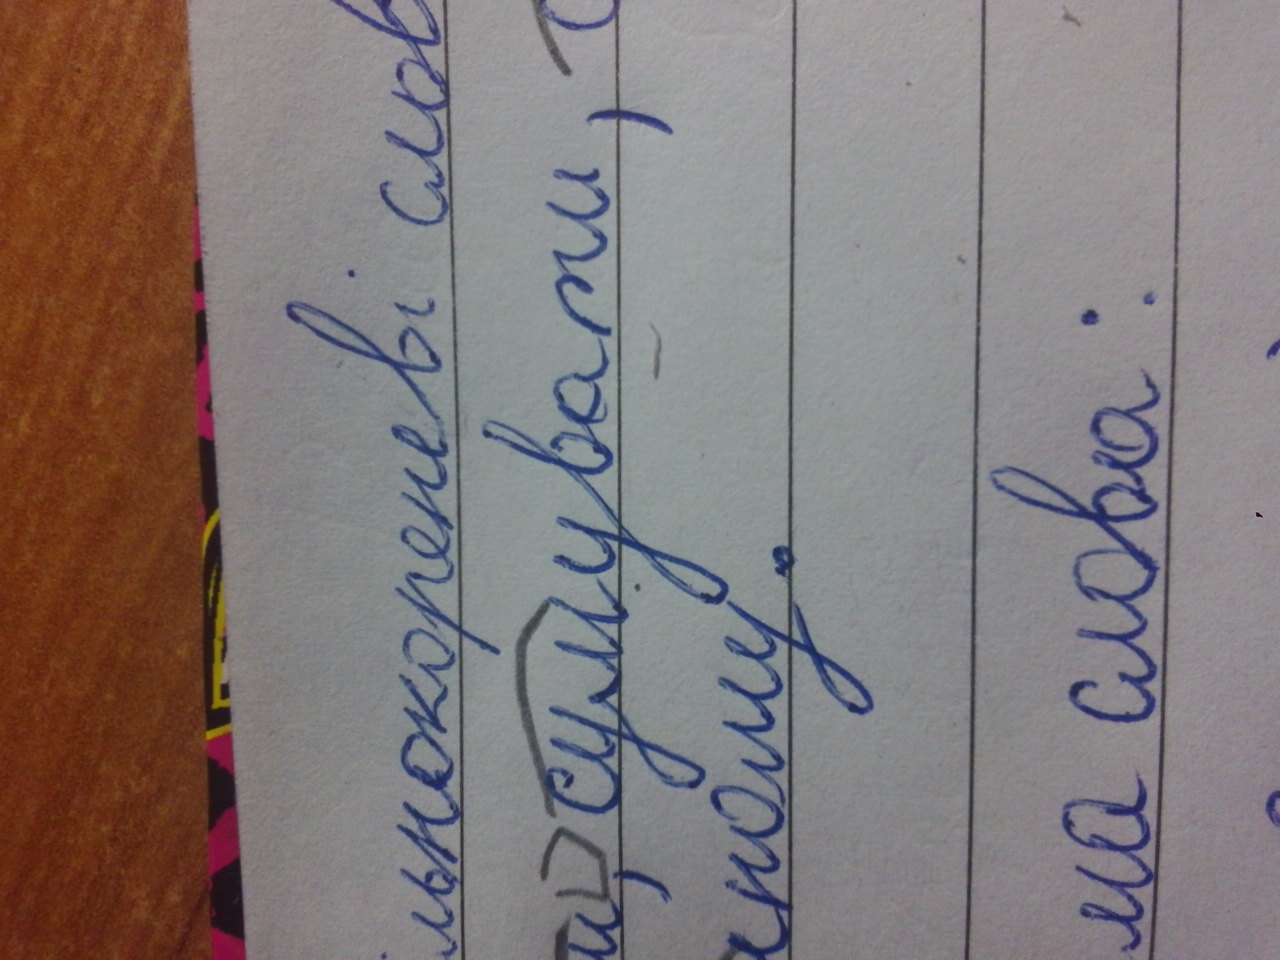 льнокореневі слов
и, сумувати, с
ному.
ма слова: